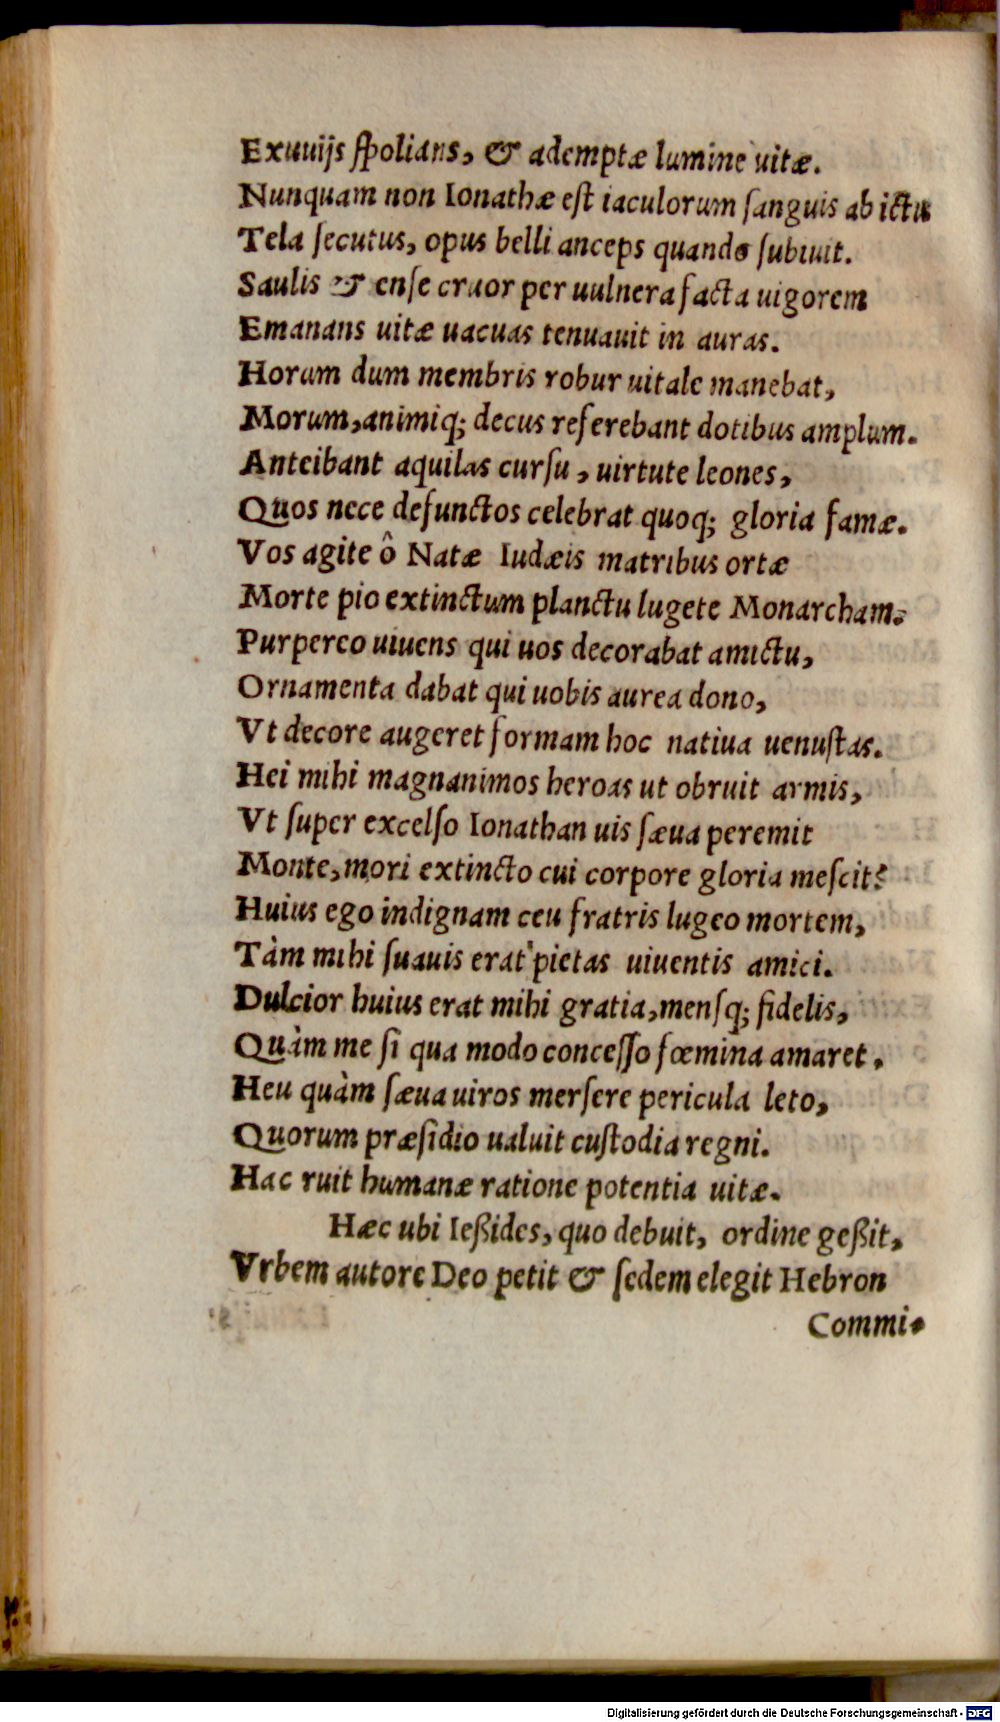 Exuuijs ſpolians, & ademptæ lumine uitæ.
Nunquam non Ionathæ eſt iaculorum ſanguis ab ictu
Tela ſecutus, opus belli anceps quando ſubiuit.
Saulis & enſe cruor per uulnera facta uigorem
Emanans uitæ uacuas tenuauit in auras.
Horum dum membris robur uitale manebat,
Morum, animiq; decus referebant dotibus amplum.
Anteibant aquilas curſu, uirtute leones,
Quos nece defunctos celebrat quoq; gloria famæ.
Vos agite ô Natæ Iudæis matribus ortæ
Morte pio extinctum planctu lugete Monarcham.
Purpereo uiuens qui uos decorabat amictu,
Ornamenta dabat qui uobis aurea dono,
Vt decore augeret formam hoc natiua uenuſtas.
Hei mihi magnanimos heroas ut obruit armis,
Vt ſuper excelſo Ionathan uis ſæua peremit
Monte, mori extincto cui corpore gloria meſcit?
Huius ego indignam ceu fratris lugeo mortem,
Tàm mihi ſuauis erat pietas uiuentis amici.
Dulcior huius erat mihi gratia, menſq; fidelis,
Quàm me ſi qua modo conceſſo fœmina amaret.
Heu quàm ſæua uiros merſere pericula leto,
Quorum præſidio ualuit cuſtodia regni.
Hac ruit humanæ ratione potentia uitæ.
Hæc ubi Ießides, quo debuit, ordine geßit,
Vrbem autore Deo petit & ſedem elegit Hebron
Commi-
Digitalisierung gefördert durch die Deutsche Forschungsgemeinschaft - DFG